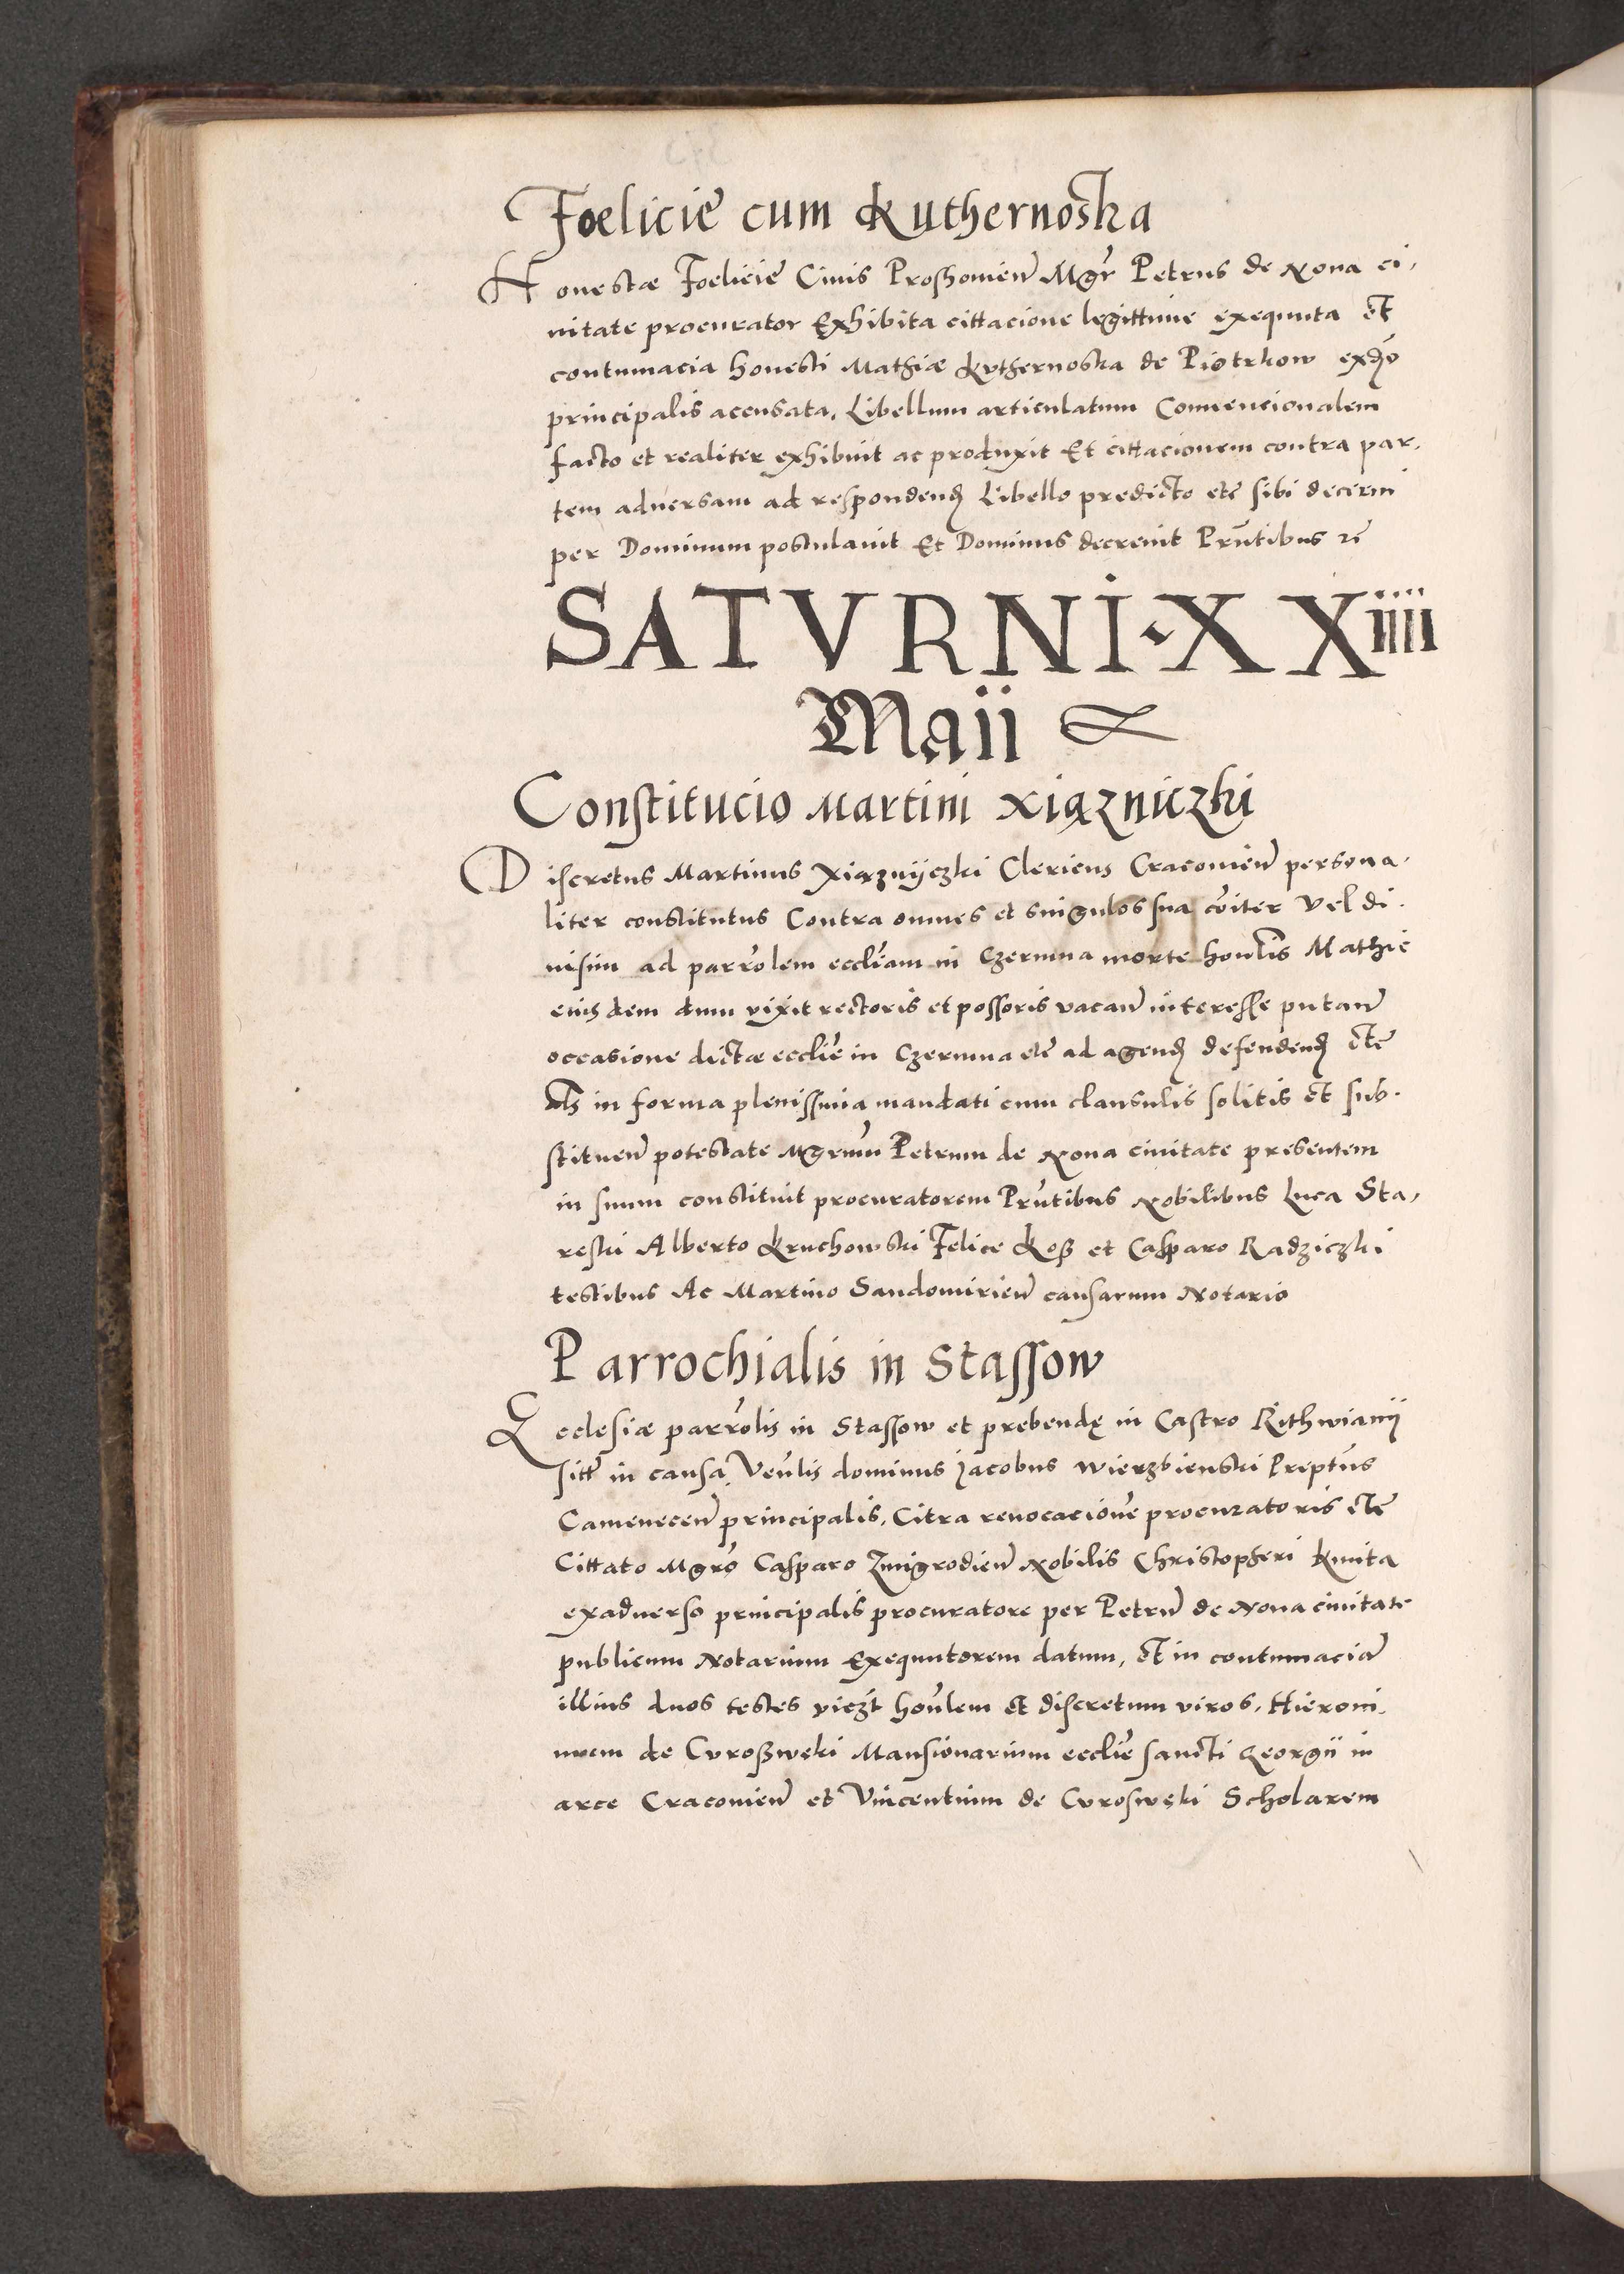 Foelicie cum Kuthernoska
Honestæ Foelicie Civis Proshoviēn Mgr̄ Petrus de Nova ci,
vitate procurator Exhibita cittacione legittime exequuta et
contumacia honesti Mathiæ Kuthernoska de Piotrkow
principalis accusata, Libellum articulatum Convencionalem
facto et realiter exhibuit ac produxit Et cittacionem contra par,
tem adversam ad respondend Libello predicto etc̄ sibi decerni
per Dominum postulavit Et Dominus decrevit Prn̄tibus
SATVRNI·XXiiii
Maii
Constitucio Martini Xiązniczki
Discretus Martinus Xiąznyczki Clericus Cracoviēn persona,
liter constitutus Contra omnes et singulos sua cōīter vel di,
visim ad parrōlem eccliam in Czermna morte honlis Mathie
eiusdem dum vixit rectoris et possoris vacan̄ interesse putan̄
occasione dictæ ecclie in Czermna etc̄ ad agend defendend etc̄
als in forma plenissima mandati cum clausulis solitis et sub,
stituen̄ potestate Mgrum Petrum de Nova civitate presentem
in suum constituit procuratorem Prn̄tibus Nobilibus Luca Sta,
reski Alberto Kruchowski Felice Koß et Casparo Radziczki
testibus Ac Martino Sandomiriēn causarum Notario
Parrochialis in Stassow
Ecclesiæ parrōlis in Stassow et prebendę in Castro Rithwianij
sitt̄ in causa, Venlis dominus Jacobus Wierzbienski Preptus
Camenecēn principalis, Citra revocacionē procuratoris etc̄
Cittato Mgrō Casparo Zmigrodiēn Nobilis Christopheri Kmita
exadverso principalis procuratore per Petrū de Nova civitate
publicum Notarium Exequutorem datum, et in contumaciā
illius duos testes viczt honlem et discretum viros, Hieroni,
mum de Curoßwęki Mansionarium ecclie sancti Georgii in
arce Cracoviēn et Vincentium de Curoswęki Scholarem